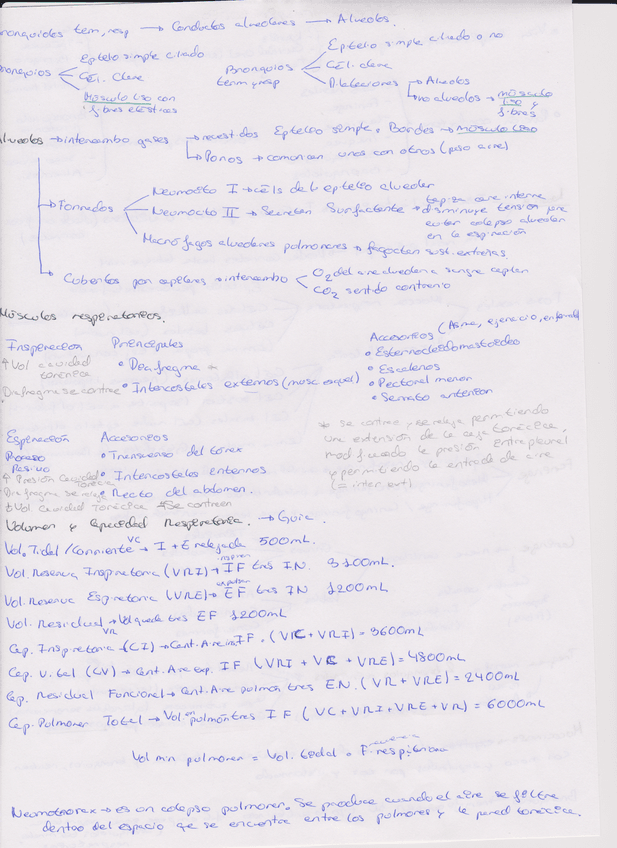 Bronquiolos term, resp → Conductos alveolares → Alveolos.
Bronquios
Eptelio simple ciliado
Cél. Clara
Músculo liso con
fibras elásticas
Bronquios
term y resp
Eptelio simple ciliado o no
Cél. Clara
Dilataciones → Alveolos
→ no alveolos → músculo
liso y
fibras
Alveolos → intercambio gases → revestidos Eptelio simple. Bordes → músculo liso
→ Poros → comunican unos con otros (paso aire)
→ Formados
Neumocito I → céls de l epitelio alveolar
Neumocito II → Secretan Surfactante → tapiza cara interna
disminuye tensión para
evitar colapso alveolar
en la espiración
Macrófagos alveolares pulmonares → fagocitan sust. extrañas
→ Cubiertos por capilares → intercambio
O2 del aire alveolar a sangre capilar
CO2 sentido contrario
Músculos respiratorios.
Inspiración Principales
↑ Vol cavidad
torácica
• Diafragma
Diafragma se contrae
• Intercostales externos (musc esquel)
Accesorios (Asma, ejercicio, enfermedad
• Esternocleidomastoideo
• Escalenos
• Pectoral menor
• Serrato anterior
Espiración Accesorios
Proceso
Pasivo
• Transverso del tórax
↑ Presión cavidad
torácica
• Intercostales internos
Diafragma se relaja
• Recto del abdomen.
↓ Vol cavidad torácica *Se contraen
* se contrae y se relaja permitiendo
una extensión de la caja torácica,
modificando la presión intrapleural
y permitiendo la entrada de aire
(= inter ext)
Volumen y Capacidad Respiratoria. → Guía.
Vol. Tidal / Corriente VC → I + E relajada 500mL.
Vol. Reserva Inspiratoria (VRI) → IF tras IN. 3100mL.
Vol. Reserva Espiratoria (VRE) → EF tras IN 1200mL
Vol. Residual VR → Vol queda tras EF 1200mL
Cap. Inspiratoria → (CI) → Cant. Aire in IF. (VC + VRI) = 3600mL
Cap. Vital (CV) → Cant. Aire exp. IF (VRI + VC + VRE) = 4800mL
Cap. Residual Funcional → Cant. Aire pulmón tras E.N. (VR + VRE) = 2400mL
Cap. Pulmonar Total → Vol. en pulmón tras IF (VC + VRI + VRE + VR) = 6000mL
Vol min pulmonar = Vol. tidal • Frecuencia respiratoria
Neumotórax → es un colapso pulmonar. Se produce cuando el aire se filtra
dentro del espacio que se encuentra entre los pulmones y la pared torácica.